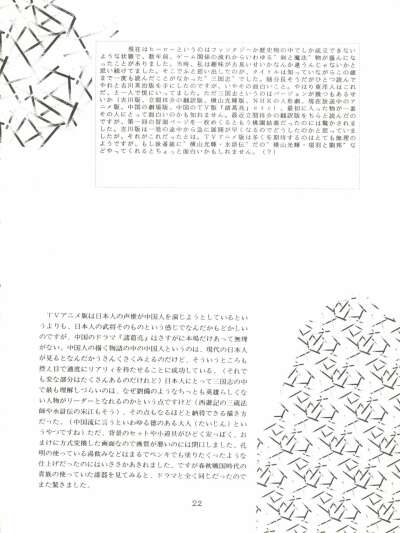 現在はヒーローというのはファンタジーか歴史物の中でしか成立できない
ような状態で、数年前、ゲーム関係の流れからいわゆる“剣と魔法”物が盛んにな
ったことがありました。当時、私は趣味が古臭いせいかなんか違うんじゃないかと
思い続けてました。そこでふと思い出したのが、タイトルは知っていながらこの歳
まで一度も読んだことがなかった“三国志”でした。随分長そうだがひとつ読んで
やれと吉川英治版を手にしたのですが、いやその面白いこと。やはり東洋人はこれ
だ、と一人で悦にいってました。ただ三国志というのはバージョンが幾つもあるせ
いか（吉川版、立間祥介の翻訳版、横山光輝版、ＮＨＫの人形劇、現在放送中のア
ニメ版、中国の劇場版、中国のＴＶ版『諸葛亮』、まだある）、最初に入った物が一番
その人にとって面白いのかも知れません。最近立間祥介の翻訳版をちらと読んだの
ですが、第一回の冒頭ページを一枚めくるともう桃園結義だったのには驚かされま
した。吉川版は一巻の途中から急に展開が早くなるのでどうしたのかと思っていま
したが、それがこれだったとは。ＴＶアニメ版は多くを期待するのはとても無理の
ようですが、もし後番組に“横山光輝・水滸伝”だの“横山光輝・項羽と劉邦”な
どやってくれるとちょっと面白いかもしれません。（？）
ＴＶアニメ版は日本人の声優が中国人を演じようとしているとい
うよりも、日本人の武将そのものという感じでなんだかもどかしい
のですが、中国のドラマ『諸葛亮』はさすがに本場だけあって無理
がない。中国人の描く物語の中の中国人というのは、現代の日本人
が見るとなんだかうさんくさくみえるのだけど、そういうところも
控え目で適度にリアリィを持たせることに成功している。（それで
も変な部分はたくさんあるのだけれど）日本人にとって三国志の中
で最も理解しづらいのは、なぜ劉備のようなちっとも英雄らしくな
い人物がリーダーとなれるのかという点ですけど（西遊記の三蔵法
師や水滸伝の宋江もそう）、その点もなるほどと納得できる描き方
だった。（中国流に言うといわゆる徳のある大人（たいじん）とい
うやつですね）ただ、背景のセットや小道具がひどく安っぽく、お
まけに方式変換した画面なので画質が悪いのには閉口しました。孔
明の使っている湯飲みなどはまるでペンキでも塗りたくったような
仕上げだったのにはいささかあきれました。ですが春秋戦国時代の
貴族の使っていた漆器を見てみると、ドラマと全く同じだったので
また驚きました。
22